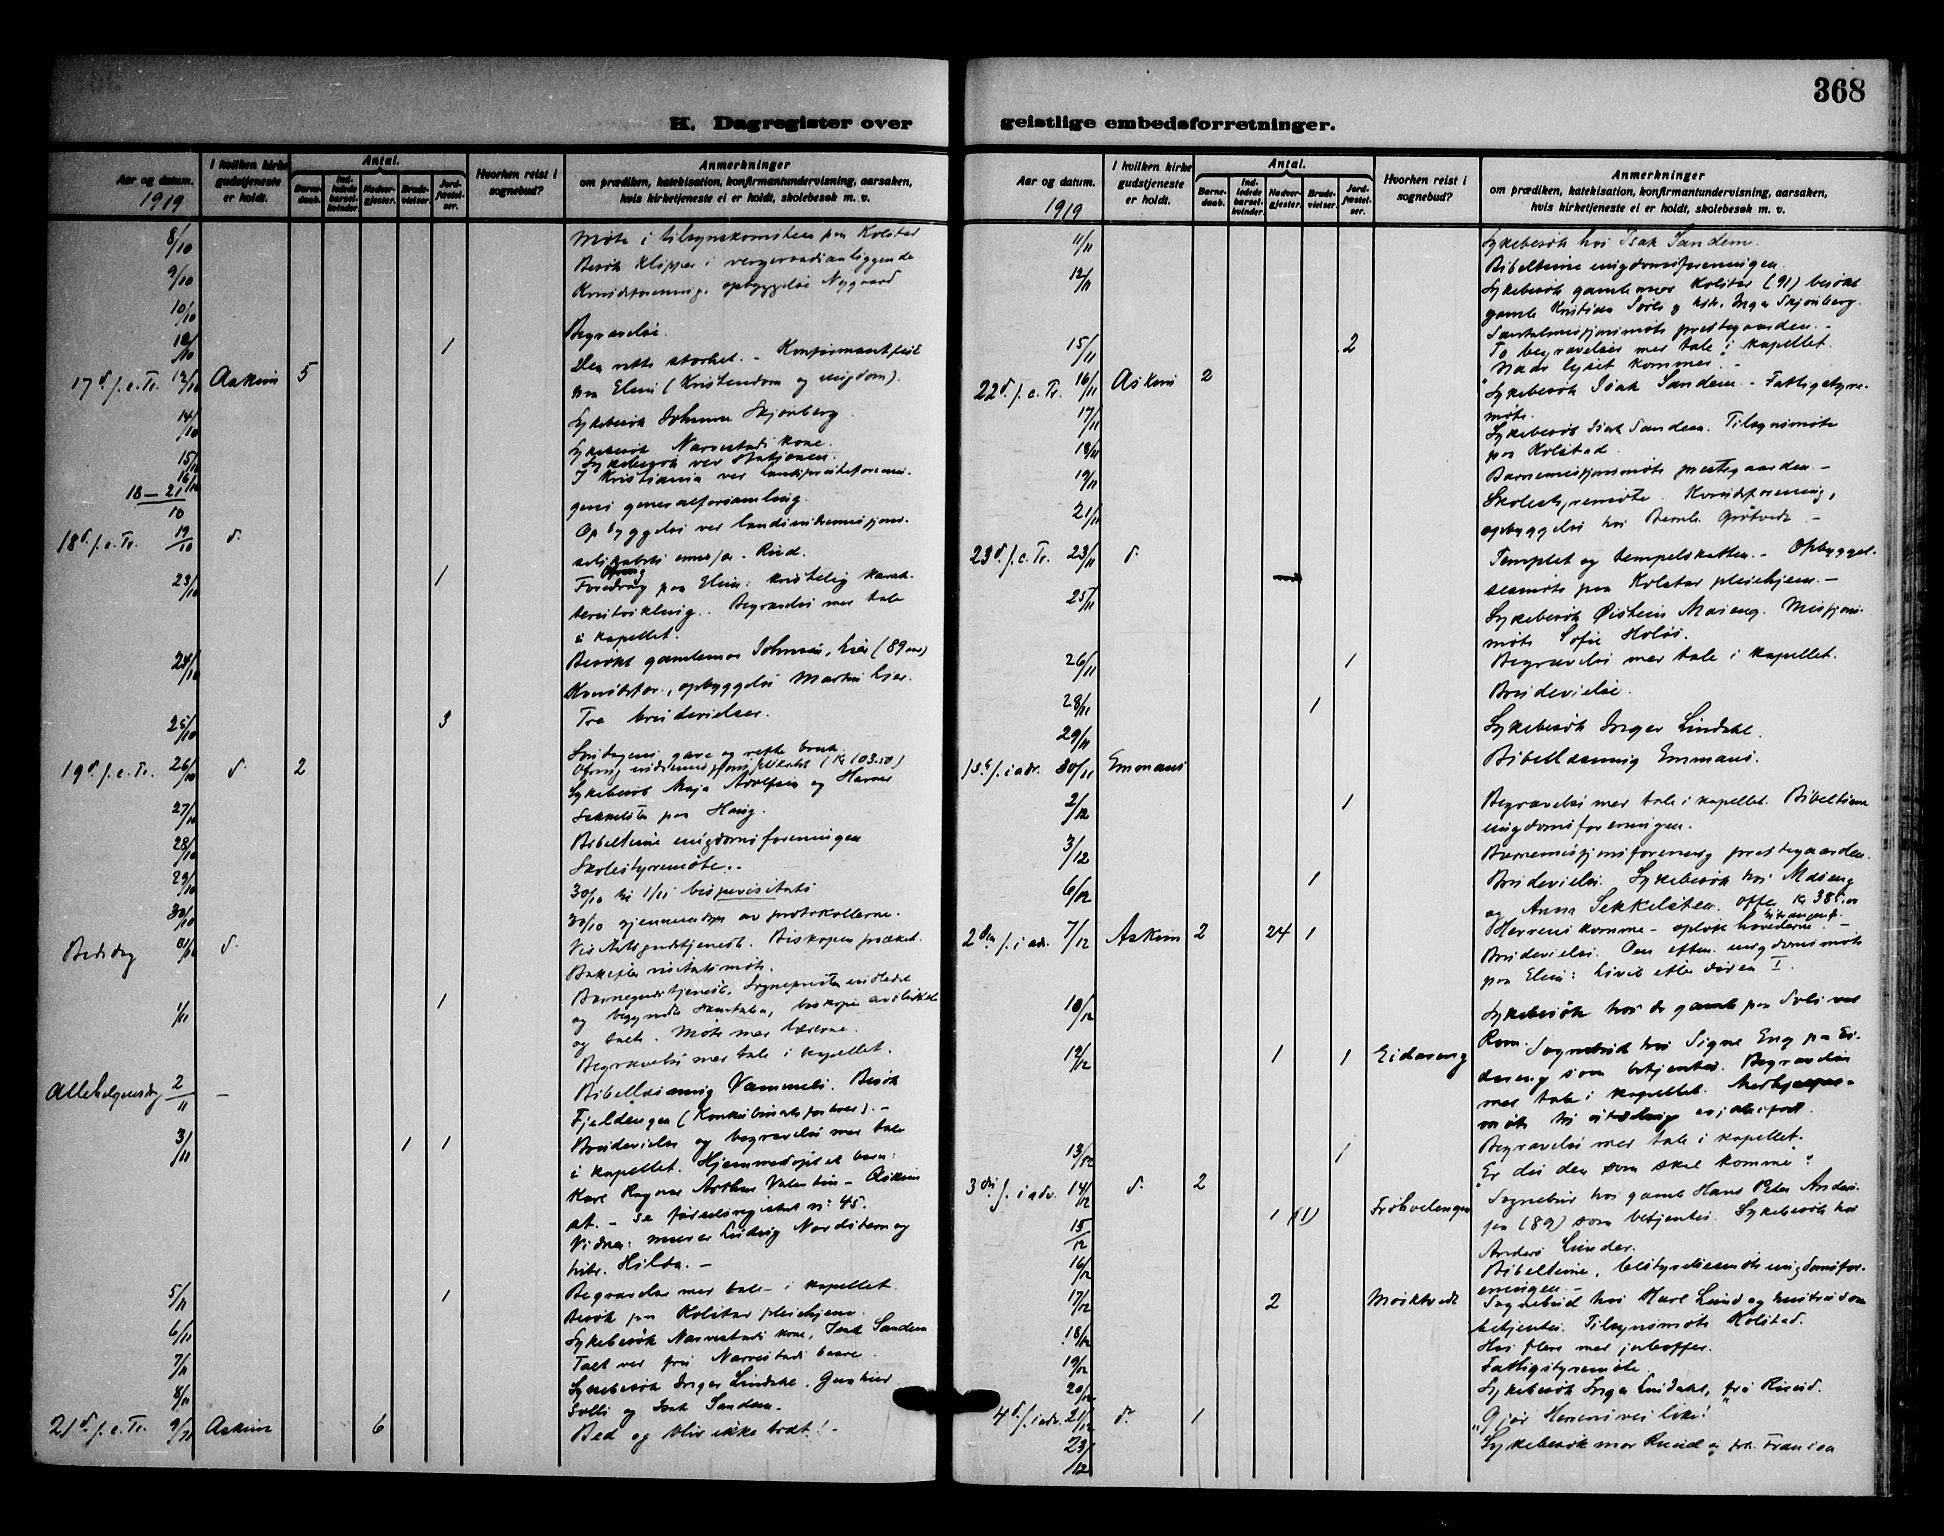 368
K. Dagregister over
geistlige embedsforretninger.
Aar og datum.
1919
I hvilken kirke gudstjeneste er holdt.
Antal.
Barnedaab.
Indledede barselkvinder.
Nadvergjester.
Brudevielser.
Jordfæstelser.
Hvorhen reist i sognebud?
Anmerkninger
om prædiken, katekisation, konfirmantundervisning, aarsaken,
hvis kirketjeneste ei er holdt, skolebesøk m. v.
8/10 Møte i tilsynskomiteen paa Kolstad
9/10 Besøk Klipper i vergeraadsanliggende
Kvindeforening, opbyggelse Nygaard
10/10
Begravelse.
12/10 1 Den rette storhet. - Konfirmantfest
17 d. s. e. Tr. 12/10 Askim 5 paa Elim (Kristendom og ungdom).
14/10 Sykebesøk Johanne Skjønberg.
Sykebesøk Narvestads kone.
15/10 Sykebesøk ved Stationen.
16/10 I Kristiania ved Landsprestefore
18 - 21/10 generalforsamling.
Opbyggelse ved landsindremissions-
18 d. s. e. Tr. 19/10 d.
23/10 1 Foredrag paa Elim: kristelig karak-
terutvikling. Begravelse med tale
i kapellet.
24/10 Besøkt gamlemor Johnsen, Lier (89 aar)
Kvindefor., opbyggelse Martin Lier.
25/10 3 Tre brudevielser.
Søndagens gave og rette bruk
19 d. s. e. Tr. 26/10 d. 2 (Kr 103.50)
Sykebesøk Maja Adolfsen og
27/10 Sekkelsten paa Haug.
28/10 Bibeltime ungdomsforeningen
29/10 Skolestyremøte.
30/10 til 1/11 bispevisitats
30/10 30/10 gjennemsyn av protokollerne.
Bededag 31/10 d. Visitatsgudstjeneste. Biskopen prædiket.
Bakefter visitatsmøte.
1/11 1 Barnegudstjeneste. Sognepresten indledet
og begyndte samtalen, biskopen avsluttet
og talte. Møte med lærerne.
Begravelse med tale i kapellet.
Allehelgensdag 2/11 - Bibellæsning Vammeli. Besøk
Fjeldengen (Konkubinatsforhold). -
3/11 1 1 Brudevielse og begravelse med tale
i kapellet. Hjemmedøpt et barn:
Karl Ragnar Arthur Valentin - Askim
st. - se fødselsregistret nr 45.
Vidner: murer Ludvig Nordstrøm og
hustr. Hilda. -
5/11 1 Begravelse med tale i kapellet.
Besøk paa Kolstad pleiehjem.
6/11 Sykebesøk Narvestads kone, Isak Sandem
7/11 Talt ved fru Narvestads baare.
8/11 Sykebesøk Inger Lindahl,
Solli og Isak Sandem.
21 d. s. e. Tr. 9/11 Askim 6 Bed og bliv ikke trætt! -
Aar og datum.
1919
I hvilken kirke gudstjeneste er holdt.
Antal.
Barnedaab.
Indledede barselkvinder.
Nadvergjester.
Brudevielser.
Jordfæstelser.
Hvorhen reist i sognebud?
Anmerkninger
om prædiken, katekisation, konfirmantundervisning, aarsaken,
hvis kirketjeneste ei er holdt, skolebesøk m. v.
11/11 Sykebesøk hos Isak Sandem.
Bibeltime ungdomsforeningen.
12/11 Sykebesøk gamlemor Kolstad (91) besøkt
gamle Kristian Sørli og Inga Skjønberg.
Santalmissionsmøte prestegaarden. -
15/11 2 To begravelser med tale i kapellet.
"Naar lyset kommer." -
22 d. s. e. Tr. 16/11 Askim 2 Sykebesøk Isak Sandem. - Fattigstyre-
møte.
17/11 Sykebesøk Isak Sandem. Tilsynsmøte
18/11 paa Kolstad.
19/11 Barnemissionsmøte prestegaarden. -
Skolestyremøte. Kvindeforening,
21/11 opbyggelse hos Bernh. Grøtvedt. -
23 d. s. e. Tr. 23/11 d. Templet og tempelskatten. - Opbyggel-
sesmøte paa Kolstad pleiehjem. -
25/11 Sykebesøk Øistein Maseng. Missions-
møte Sofie Holøs.
26/11 1 Begravelse med tale i kapellet.
28/11 1 Brudevielse.
29/11 Sykebesøk Inger Lindahl.
1ste s. i adv. 30/11 Emmaus Bibellæsning Emmaus.
2/12 1 Begravelse med tale i kapellet. Bibeltime
ungdomsforeningen.
3/12 Barnemissionsforening prestegaarden.
6/12 1 Brudevielse. Sykebesøk hos Maseng
og Anna Sekkelsten. Offer Kr 385.00
2den s. i adv. 7/12 Askim 2 24 1 Herrens komme - opløft hoverderne!" -
Brudevielse. Om efterm. ungdomsmøte
paa Elim: Livet efter døden I.
10/12 Sykebesøk hos de gamle paa Solli ved
Rom.
12/12 1 1 Eidareng Sognebud hos Signe Eng paa Ei-
dareng som betjentes. Begravelse
med tale i kapellet.
møte
13/12 1 Begravelse med tale i kapellet.
"Er du den som skal komme".
3die s. i adv. 14/12 d. 2
15/12 1 (1) Frøhvelengen Sognebud hos gamle Hans Peter Anders-
sen (89) som betjentes. Sykebesøk hos
Anders Lunder.
16/12 Bibeltime, bestyrelsesmøte ungdomsfor-
eningen. -
17/12 2 Mørktvedt Sognebud hos Karl Lund og hustru som
betjentes. Tilsynsmøte Kolstad.
18/12 Hos flere med juleoffer.
19/12 Fattigstyremøte.
20/12 Sykebesøk Inga Lindahl, fru Ruud.
4d. s. i adv. 21/12 d. 1 "Gjør Herrens vei like!"
23/12 Sykebesøk mor Ruud og